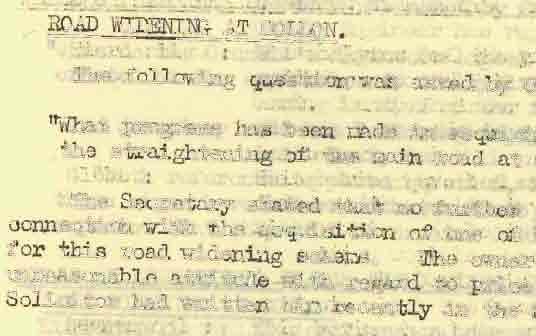 ROAD WIDENING AT COLLON.
The following question was asked by
"What progress has been made in acquiring
the straightening of the main road at
The Secretary stated that no further
connection with the acquisition of one of
for this road widening scheme. The owner
unreasonable attitude with regard to price
Solicitor had written him recently in the